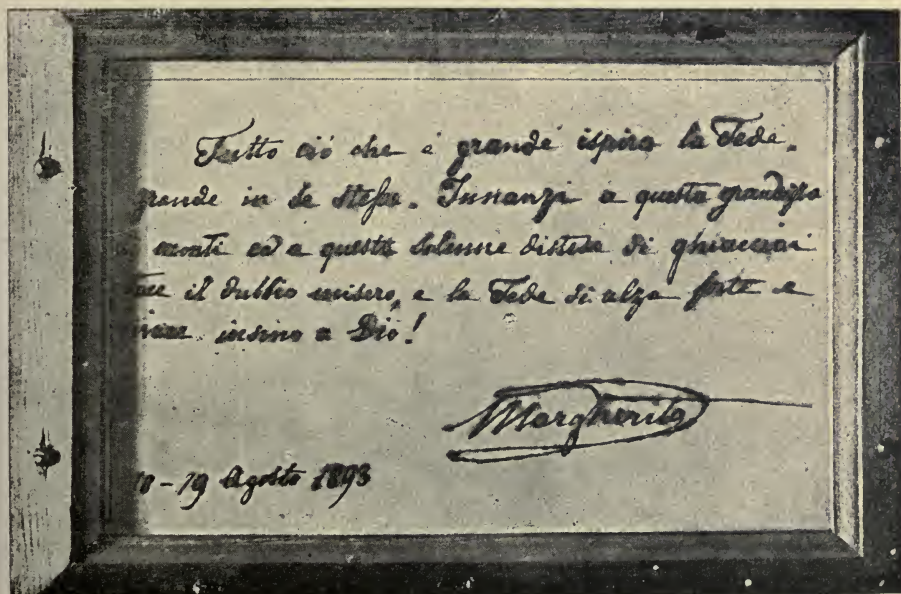 Tutto ciò che è grande ispira la Fede,
grande in se stessa. Innanzi a questa grandezza
monti ed a questa solenne distesa di ghiacciai
tace il dubbio misero, e la Fede si alza forte e
vivace insino a Dio!
Margherita
18-19 Agosto 1893